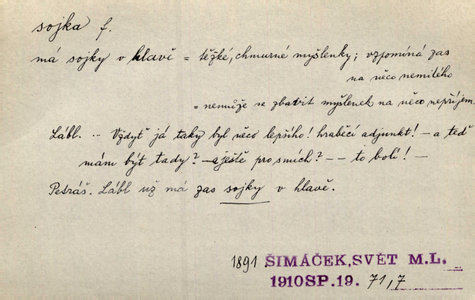 sojka f.
má sojky v hlavě = těžké, chmurné myšlenky; vzpomíná zas
na něco nemilého
= nemůže se zbavit myšlenek na něco nepříjem
Lábl. -- Vždyť já taky byl něco lepšího! hraběcí adjunkt! - a teď
mám být tady? - a ještě pro smích? - - to bolí! -
Petráš. Lábl už má zas sojky v hlavě.
1891 ŠIMÁČEK, SVĚT M.L.
1910 SP. 19. 71,7